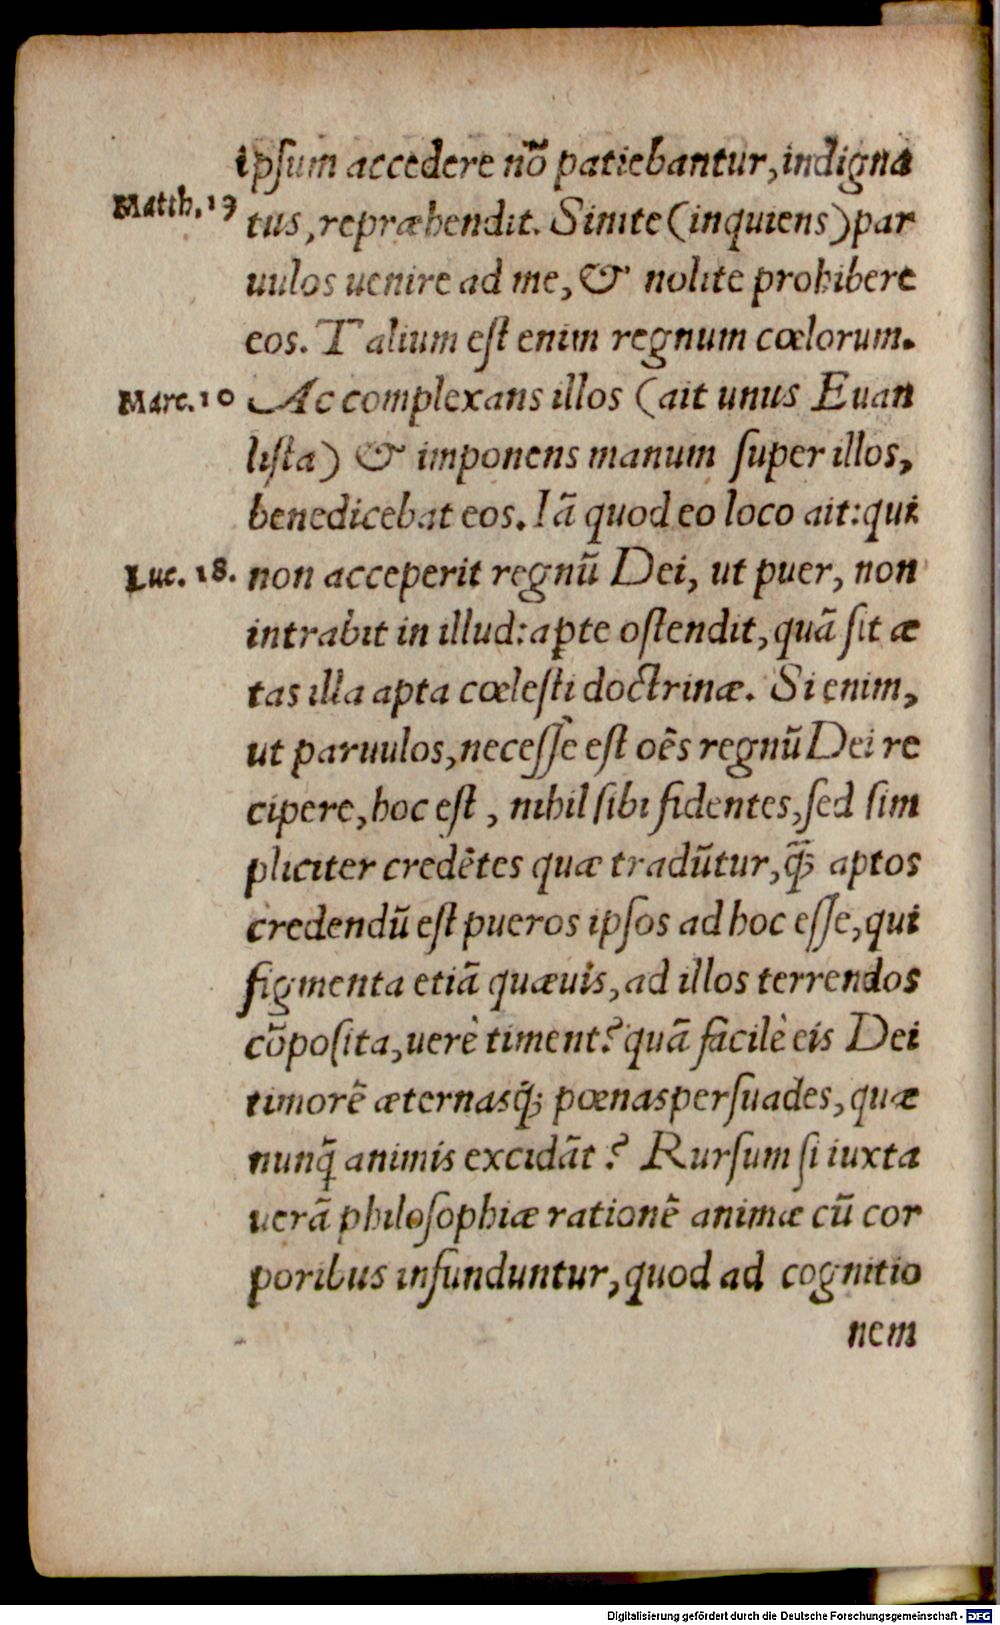 ipſum accedere nõ patiebantur, indigna
Matth. 19
tus, repræhendit. Sinite (inquiens) par
uulos uenire ad me, & nolite prohibere
eos. Talium eſt enim regnum cœlorum.
Marc. 10
Ac complexans illos (ait unus Euan
liſta) & imponens manum ſuper illos,
benedicebat eos. Iã quod eo loco ait: qui
Luc. 18.
non acceperit regnũ Dei, ut puer, non
intrabit in illud: apte oſtendit, quã ſit æ
tas illa apta cœleſti doctrinæ. Si enim,
ut paruulos, neceſſe eſt oẽs regnũ Dei re
cipere, hoc eſt, nihil ſibi fidentes, ſed ſim
pliciter credẽtes quæ tradũtur, q̃ꝫ aptos
credendũ eſt pueros ipſos ad hoc eſſe, qui
figmenta etiã quæuis, ad illos terrendos
cõpoſita, uerè timent? quã facilè eis Dei
timorẽ æternasq́ꝫ pœnas perſuades, quæ
nunq̃ animis excidãt? Rurſum ſi iuxta
uerã philoſophiæ rationẽ animæ cũ cor
poribus infunduntur, quod ad cognitio
nem
Digitalisierung gefördert durch die Deutsche Forschungsgemeinschaft - DFG